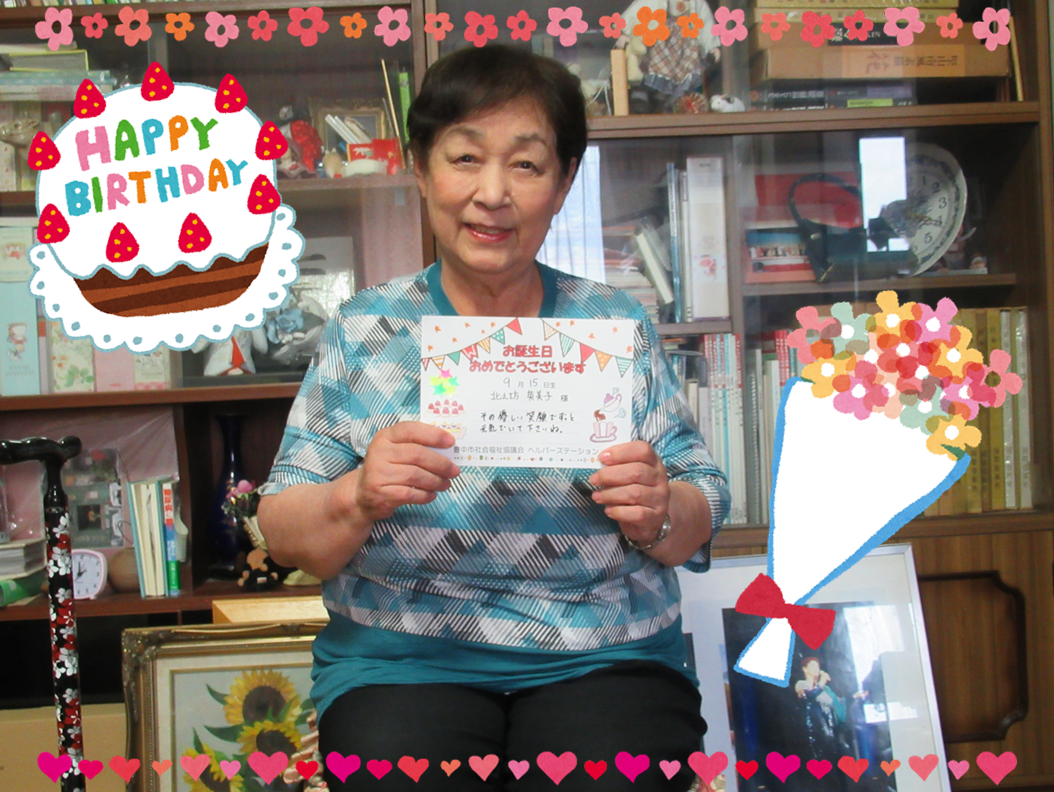 HAPPY
BIRTHDAY
お誕生日
おめでとうございます
9月15日生
北之坊 英美子 様
その優しい笑顔でずっと
元気でいて下さいね。
豊中市社会福祉協議会 ヘルパーステーション